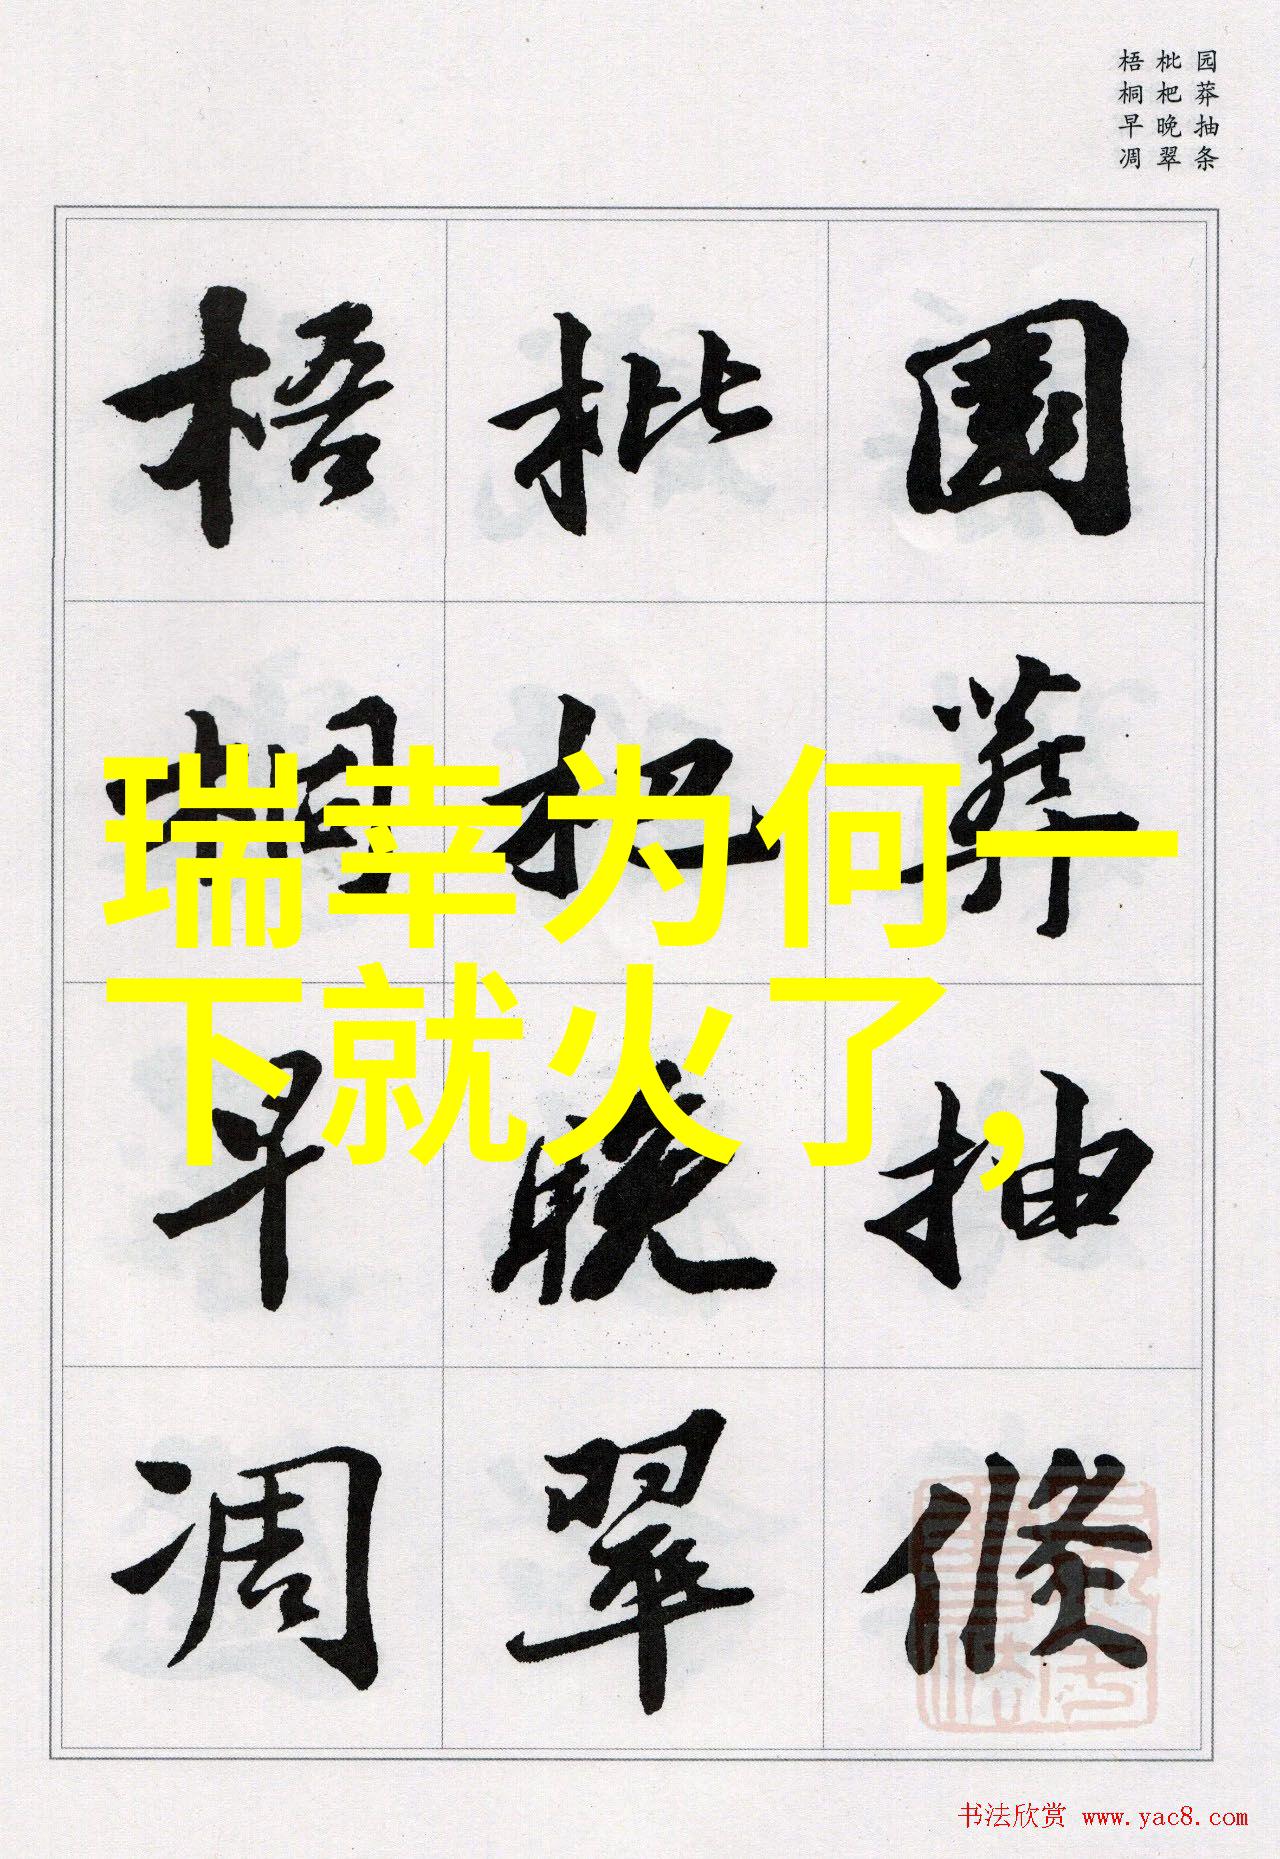 园莽抽条
枇杷晚翠
梧桐早凋
園莽抽條
枇杷晚翠
梧桐早凋
瑞幸为何一
下就火了，
书法欣赏 www.yac8.com